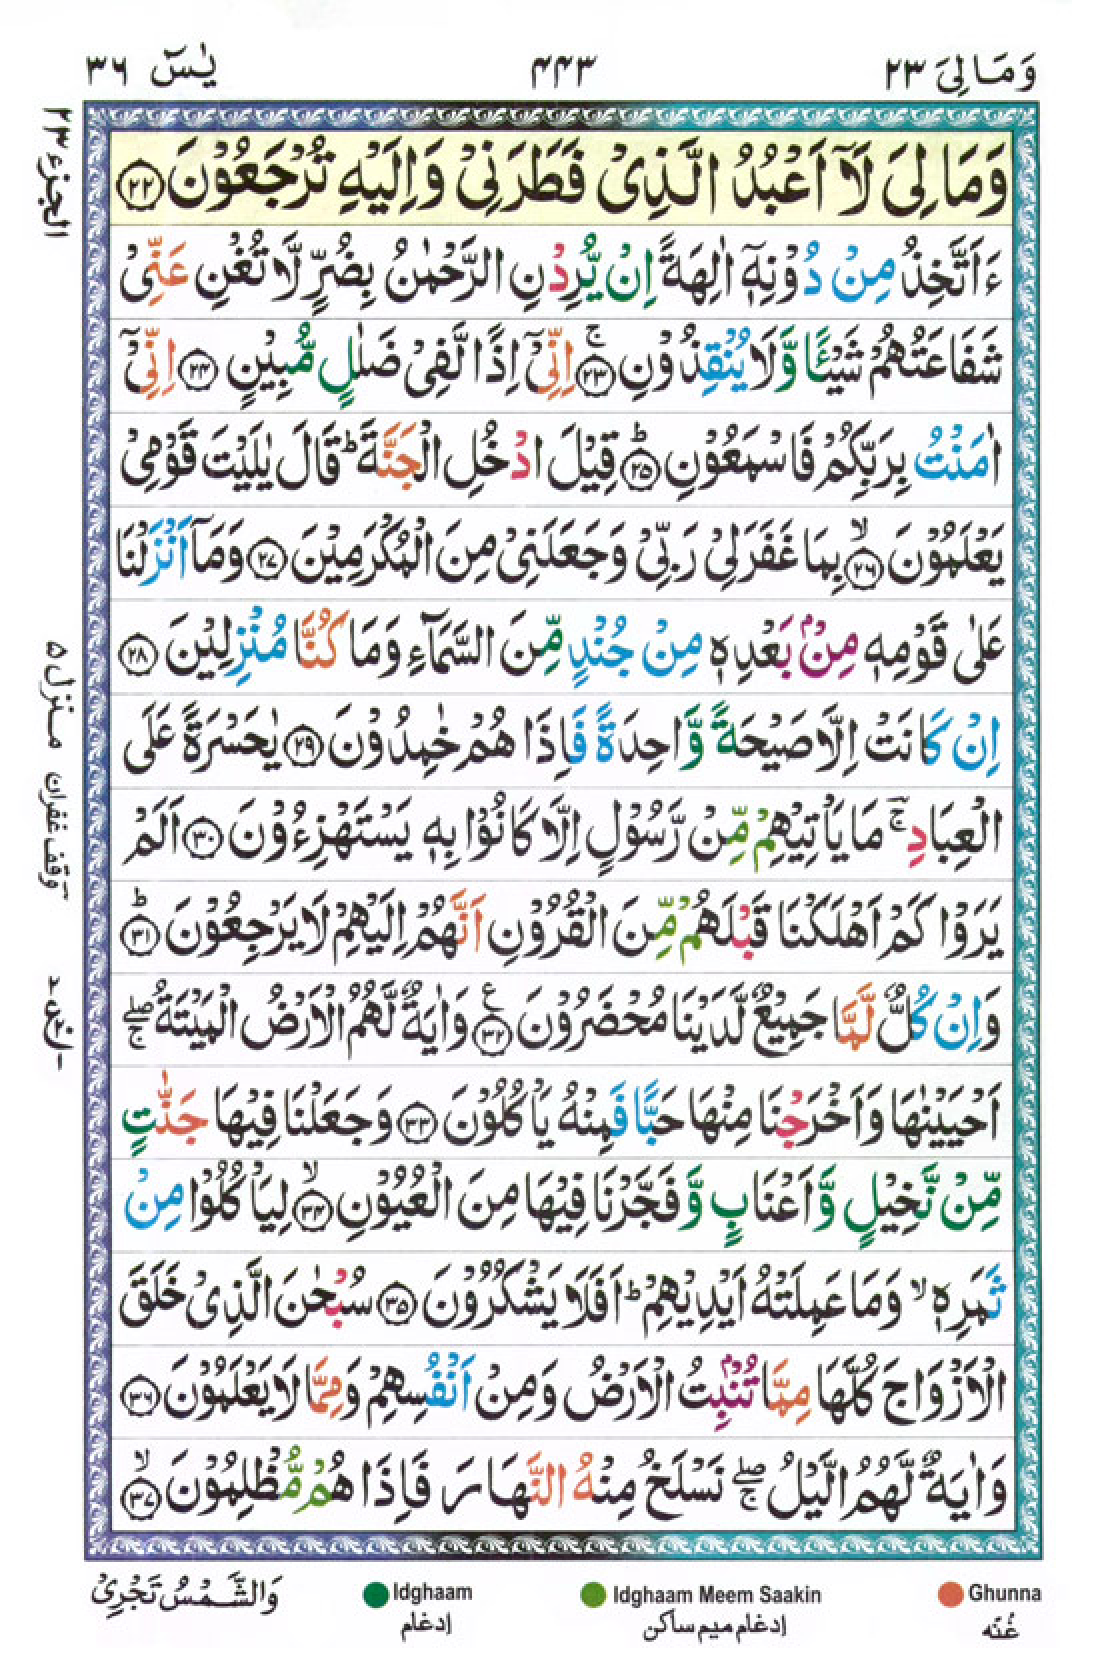 وَمَالِیَ ٢٣
٤٤٣
یٰسٓ ٣٦
الجزء ٢٣
وَمَا لِیَ لَاۤ اَعْبُدُ الَّذِیْ فَطَرَنِیْ وَاِلَیْهِ تُرْجَعُوْنَ ﴿٢٢﴾
ءَاَتَّخِذُ مِنْ دُوْنِهٖۤ اٰلِهَةً اِنْ یُّرِدْنِ الرَّحْمٰنُ بِضُرٍّ لَّا تُغْنِ عَنِّیْ
شَفَاعَتُهُمْ شَیْـًٔا وَّلَا یُنْقِذُوْنِ ﴿٢٣﴾ۚ اِنِّیْۤ اِذًا لَّفِیْ ضَلٰلٍ مُّبِیْنٍ ﴿٢٤﴾ اِنِّیْۤ
اٰمَنْتُ بِرَبِّكُمْ فَاسْمَعُوْنِ ﴿٢٥﴾ؕ قِیْلَ ادْخُلِ الْجَنَّةَ ؕ قَالَ یٰلَیْتَ قَوْمِیْ
یَعْلَمُوْنَ ﴿٢٦﴾ۙ بِمَا غَفَرَلِیْ رَبِّیْ وَجَعَلَنِیْ مِنَ الْمُكْرَمِیْنَ ﴿٢٧﴾ وَمَاۤ اَنْزَلْنَا
عَلٰی قَوْمِهٖ مِنْۢ بَعْدِهٖ مِنْ جُنْدٍ مِّنَ السَّمَآءِ وَمَا كُنَّا مُنْزِلِیْنَ ﴿٢٨﴾
اِنْ كَانَتْ اِلَّا صَیْحَةً وَّاحِدَةً فَاِذَا هُمْ خٰمِدُوْنَ ﴿٢٩﴾ یٰحَسْرَةً عَلَی
الْعِبَادِ ۚؔ مَا یَاْتِیْهِمْ مِّنْ رَّسُوْلٍ اِلَّا كَانُوْا بِهٖ یَسْتَهْزِءُوْنَ ﴿٣٠﴾ اَلَمْ
یَرَوْا كَمْ اَهْلَكْنَا قَبْلَهُمْ مِّنَ الْقُرُوْنِ اَنَّهُمْ اِلَیْهِمْ لَا یَرْجِعُوْنَ ﴿٣١﴾ؕ
وَاِنْ كُلٌّ لَّمَّا جَمِیْعٌ لَّدَیْنَا مُحْضَرُوْنَ ﴿٣٢﴾ وَاٰیَةٌ لَّهُمُ الْاَرْضُ الْمَیْتَةُ ۖۚ
اَحْیَیْنٰهَا وَاَخْرَجْنَا مِنْهَا حَبًّا فَمِنْهُ یَاْكُلُوْنَ ﴿٣٣﴾ وَجَعَلْنَا فِیْهَا جَنّٰتٍ
مِّنْ نَّخِیْلٍ وَّاَعْنَابٍ وَّفَجَّرْنَا فِیْهَا مِنَ الْعُیُوْنِ ﴿٣٤﴾ۙ لِیَاْكُلُوْا مِنْ
ثَمَرِهٖ ۙ وَمَا عَمِلَتْهُ اَیْدِیْهِمْ ؕ اَفَلَا یَشْكُرُوْنَ ﴿٣٥﴾ سُبْحٰنَ الَّذِیْ خَلَقَ
الْاَزْوَاجَ كُلَّهَا مِمَّا تُنْۢبِتُ الْاَرْضُ وَمِنْ اَنْفُسِهِمْ وَمِمَّا لَا یَعْلَمُوْنَ ﴿٣٦﴾
وَاٰیَةٌ لَّهُمُ الَّیْلُ ۖۚ نَسْلَخُ مِنْهُ النَّهَارَ فَاِذَا هُمْ مُّظْلِمُوْنَ ﴿٣٧﴾ۙ
منزل ٥
وقف غفران
وَالشَّمْسُ تَجْرِیْ
Idghaam
ادغام
Idghaam Meem Saakin
ادغام میم ساکن
Ghunna
غُنّه